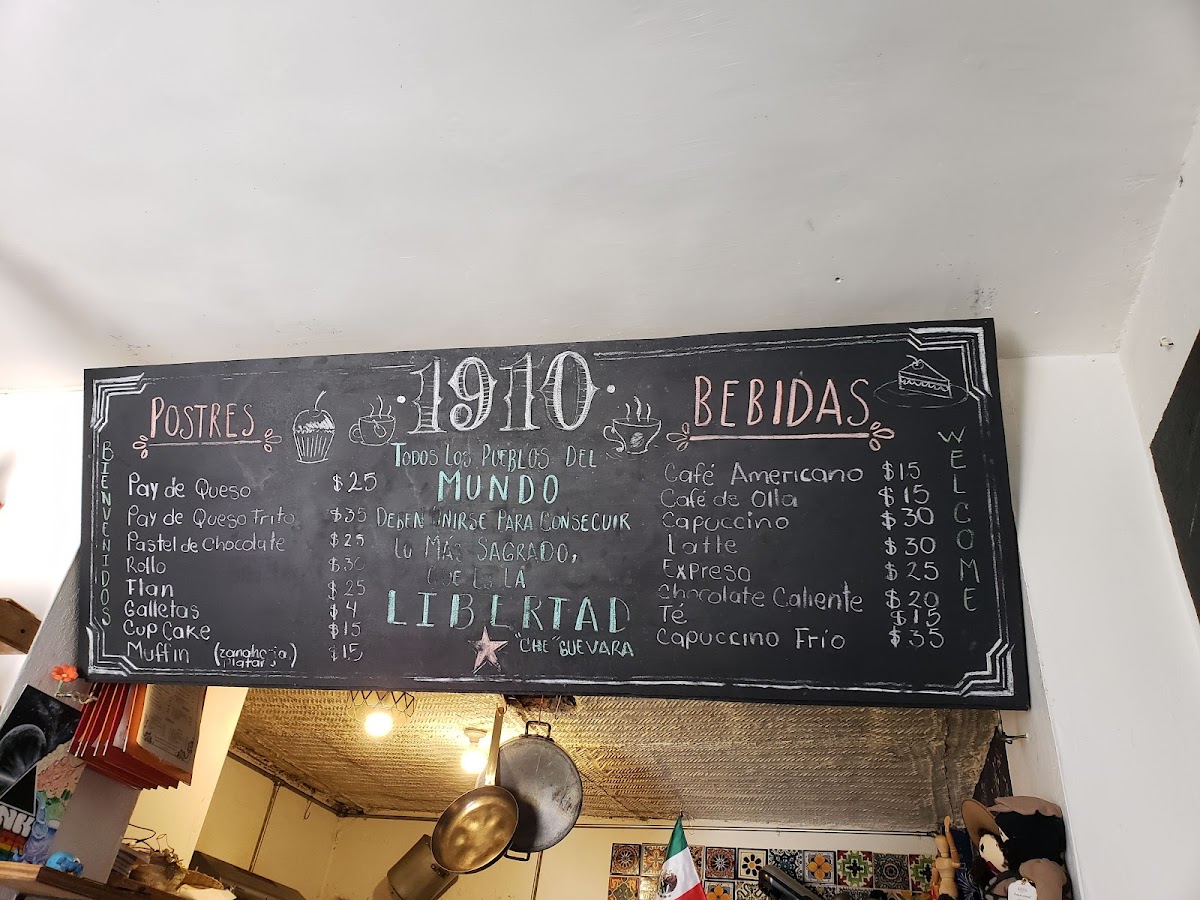 1910
POSTRES
BIENVENIDOS
Pay de Queso $25
Pay de Queso Frito $35
Pastel de Chocolate $25
Rollo $30
Flan $25
Galletas $4
Cup Cake $15
Muffin (zanahoria, platano) $15
TODOS LOS PUEBLOS DEL
MUNDO
DEBEN UNIRSE PARA CONSEGUIR
LO MÁS SAGRADO,
QUE ES LA
LIBERTAD
"CHE" GUEVARA
BEBIDAS
Café Americano $15
Café de Olla $15
Capuccino $30
Latte $30
Expreso $25
Chocolate Caliente $20
Té $15
Capuccino Frío $35
WELCOME
NK